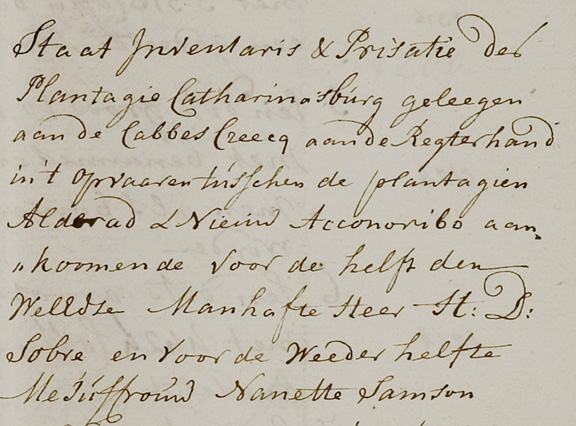 Staat Inventaris & Prisatie der
Plantagie Catharinasburg geleegen
aan de Cabbes Creecq aan de Regterhand
in't opvaaren tusschen de plantagien
Alderad & Nieuw Acconoribo aan„
„koomende voor de helft den
WelEdse Manhafte Heer H: D:
Sobre en voor de Weeder helfte
Mejuffrouw Nanette Samson